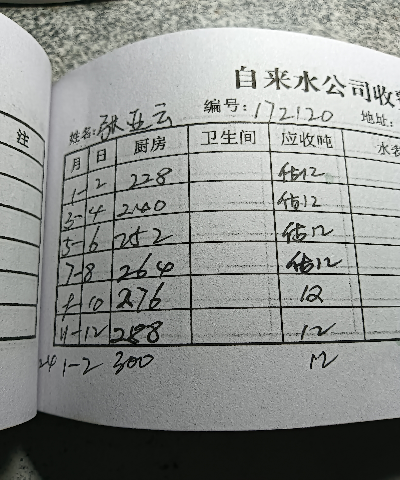 自来水公司收
姓名:张亚云 编号:172120 地址:
注
月 日 厨房 卫生间 应收吨 水
1-2 228 估12
3-4 240 估12
5-6 252 估12
7-8 264 估12
9-10 276 12
11-12 288 12
24 1-2 300 12